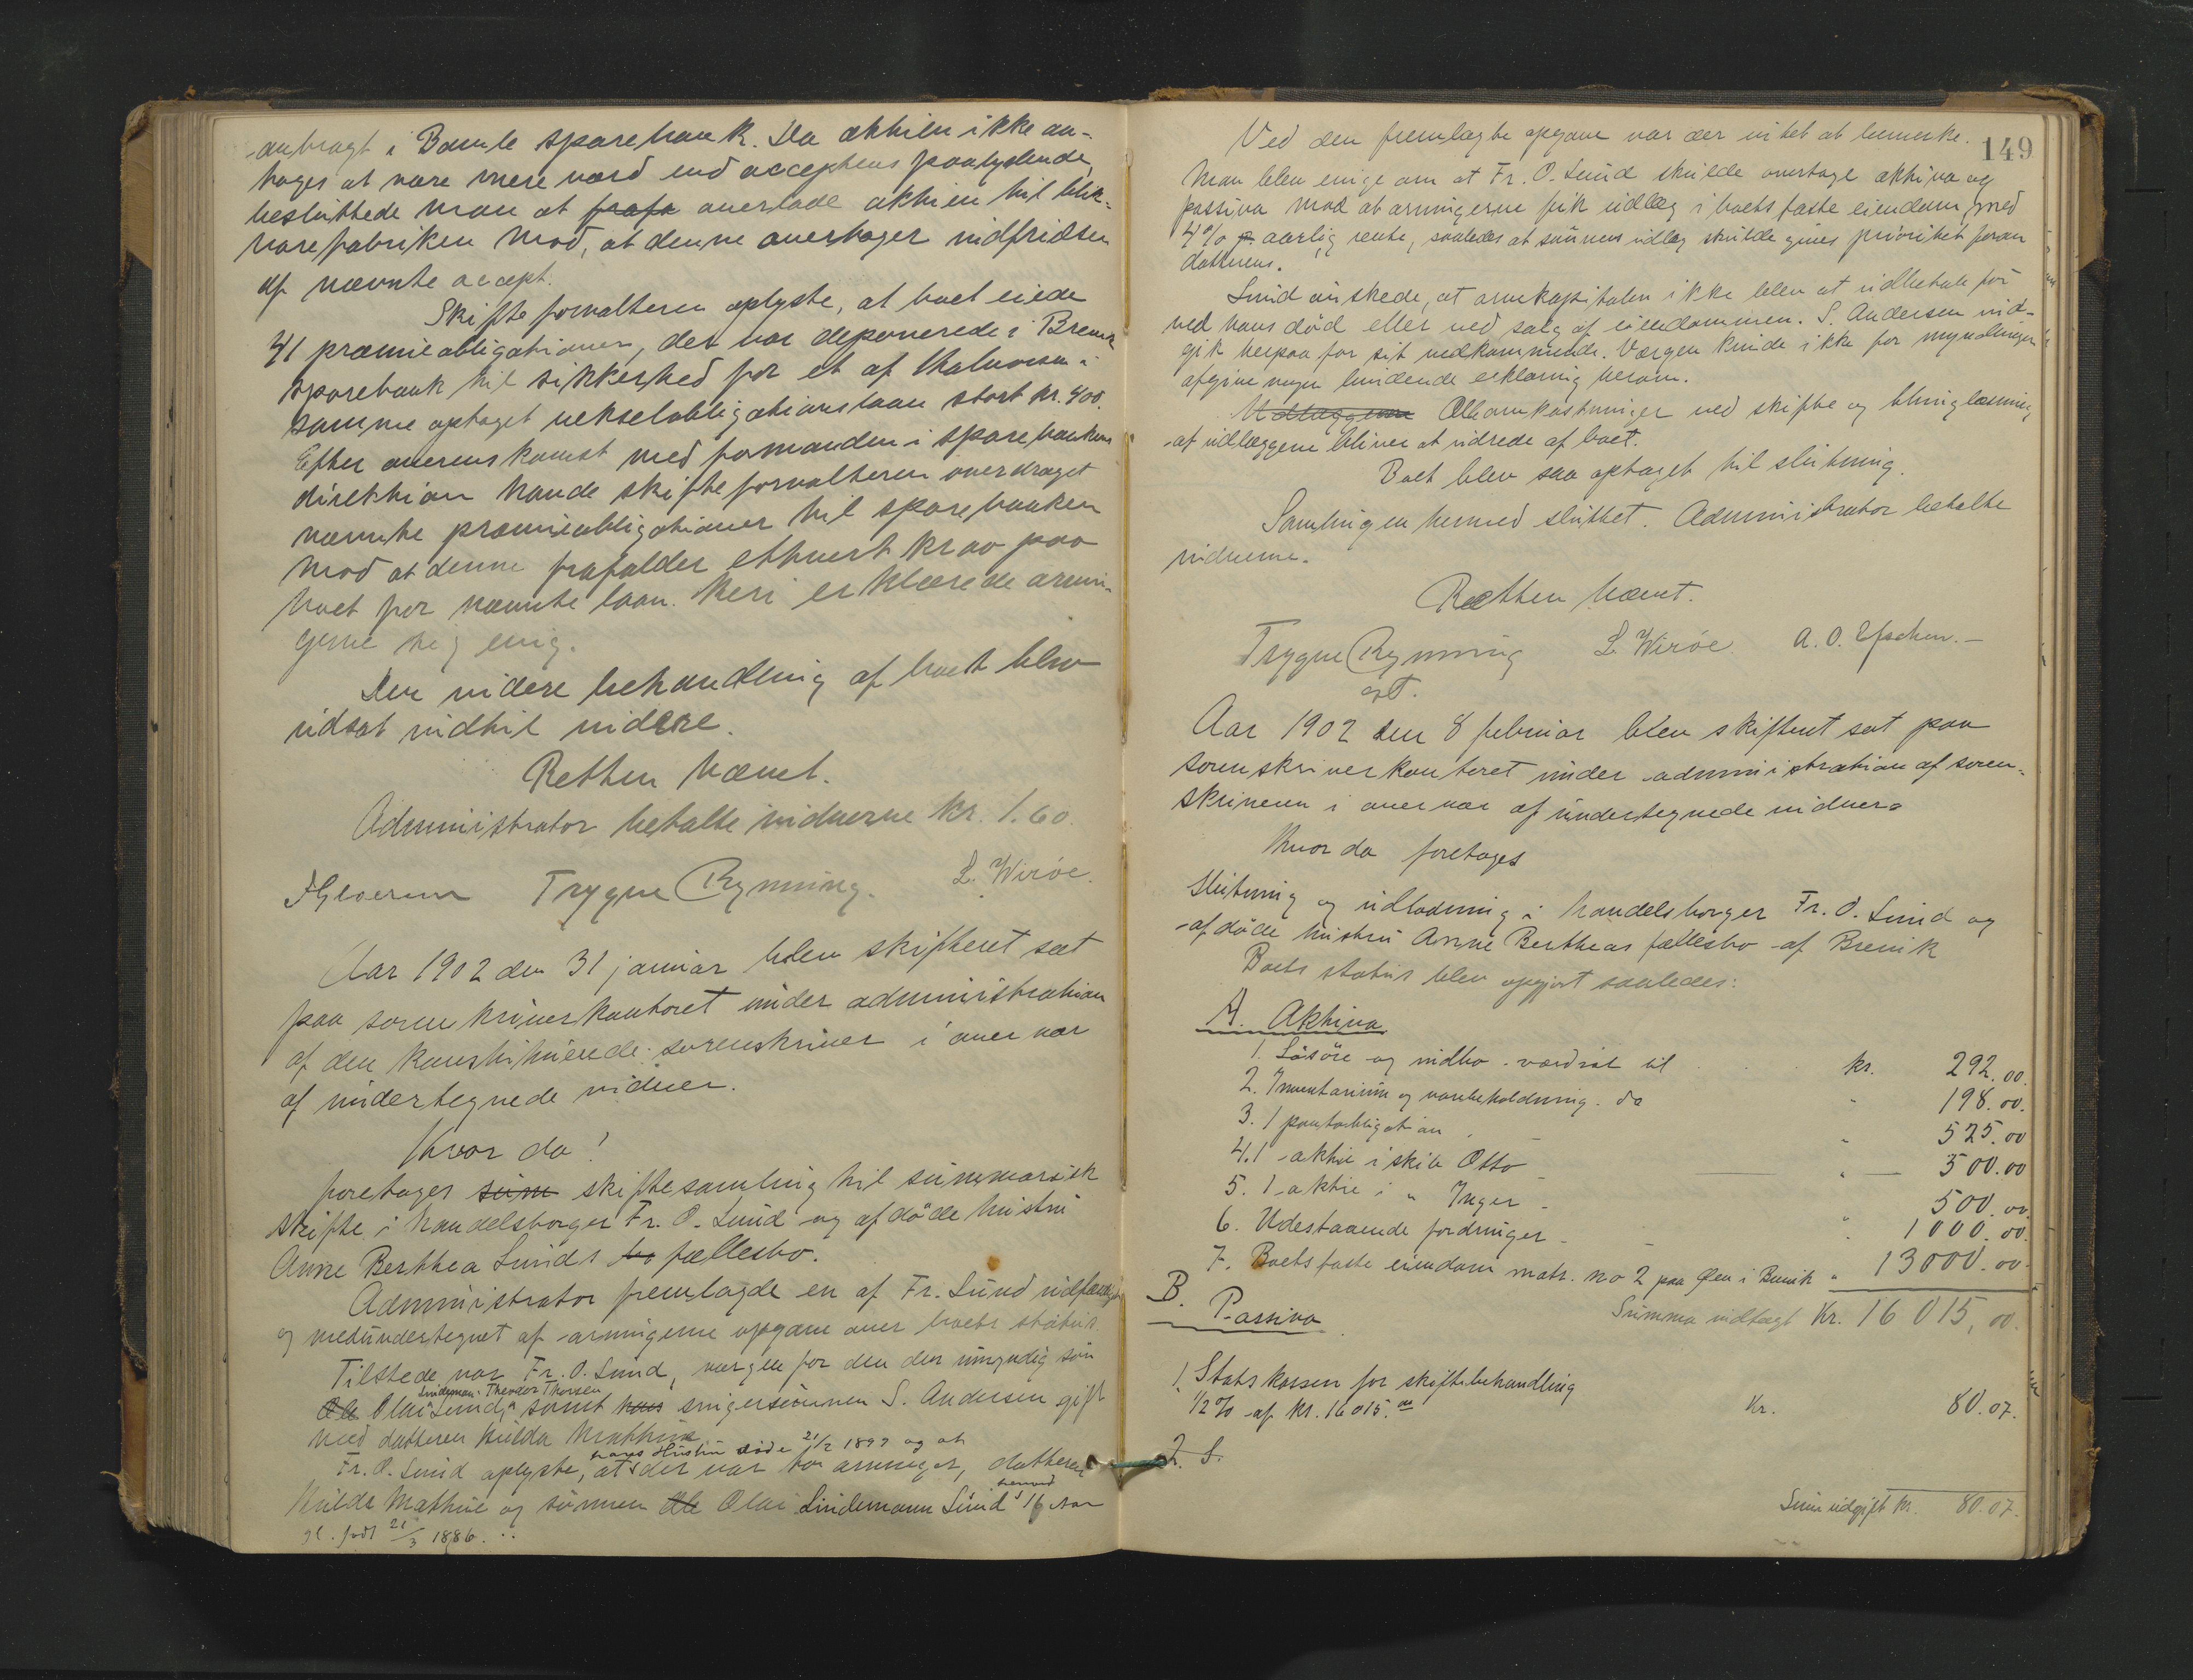 anbragt i Bamle sparebank. Da aktien ikke an-
tages at være mere værd end acceptens paalydende
besluttede man at frafa overlade aktien til blik-
varefabriken mod, at denne overtager indfridsen
af nævnte accept.
Skifteforvalteren oplyste, at boet eiede
41 præmieobligationer, der var deponerede i Brevik
sparebank til sikkerhed for et af Halvorsen i
samme optaget vekselobligationslaan stort kr. 400.
Efter overenskomst med formanden i sparebankens
direktion havde skifteforvalteren overdraget
nævnte præmieobligationer til sparebanken
mod at denne frafalder ethvert krav paa
boet for nævnte laan. Heri erklærede arvin-
gerne sig enig.
Den videre behandling af boet blev
udsat indtil videre.
Retten hævet.
Administrator betalte vidnerne kr. 1.60.
Trygve Rynning. L. Wirøe.
Aar 1902 den 31 januar blev skifteret sat
paa sorenskriverkontoret under administration
af den konstituerede sorenskriver i overvær
af undertegnede vidner.
Hvor da!
foretages sum skiftesamling til summarisk
skifte i handelsborger Fr. O. Lund og afdøde hustru
Anne Berthea Lunds bo fællesbo.
Administrator fremlagde en af Fr. Lund
og medundertegnet af arvingerne opgave over boets status.
Tilstede var Fr. O. Lund, værgen for den den umyndig søn
Lindeman: Theodor Thorsen
Ole Olai Lund, samt hans svigersønnen S. Andersen gift
med datteren Hulda Mathine
hans Hustru døde 21/2 1899 og at
Fr. O. Lund oplyste, at der var to arvinger, datteren
Hulda Mathine og sønnen Ole Olai Lindemann Lund 16 Aar
gl. født 21/3 1886.
149
Ved den fremlagte opgave var der intet at bemerke.
Man blev enige om at Fr. O. Lund skulde overtage aktiva og
passiva mod at arvingerne fik udlæg i boets faste eiendom med
4% p. aarlig rente, saaledes at sønnens udlæg skulde gives prioritet foran
datterens.
Lund ønskede, at arvekapitalen ikke blev at udbetale før
ved hans død eller ved salg af eiendommen. S. Andersen ind-
gik herpaa for sit vedkommende. Værgen kunde ikke for myndlingen
afgive nogen bindende erklæring herom.
Udlæggene Alle omkostninger ved skifte og thinglæsning
af udlæggene bliver at udrede af boet.
Boet blev saa optaget til slutning.
Samlingen hermed sluttet. Administrator betalte
vidnerne.
Retten hævet.
Trygve Rynning L. Wirøe A. O.
cst.
Aar 1902 den 8 februar blev skifteret sat paa
sorenskriverkontoret under administration af soren-
skriveren i overvær af undertegnede vidner
hvor da foretages
slutning og udlodning i handelsborger Fr. O. Lund og
afdøde hustru Anne Bertheas fællesbo af Brevik
Boets status blev opgjort saaledes:
A. Aktiva
1. Løsøre og indbo værdsat til kr. 292.00.
2. Inventarium og varebeholdning. do " 198.00.
3. 1 pantobligation " 525.00
4. 1 aktie i skib Otto " 500.00
5. 1 aktie i " Inger " 500.00.
6. Udestaaende fordringer " 1000.00.
7. Boets faste eiendom matr. no 2 paa Øen i Brevik " 13000.00.
Summa indtægt Kr. 16015,00.
B. Passiva
1. Statskassen for skiftebehandling
1/2 % af kr. 16015.00 Kr. 80.07.
2. S.
Sum udgift kr. 80.07.